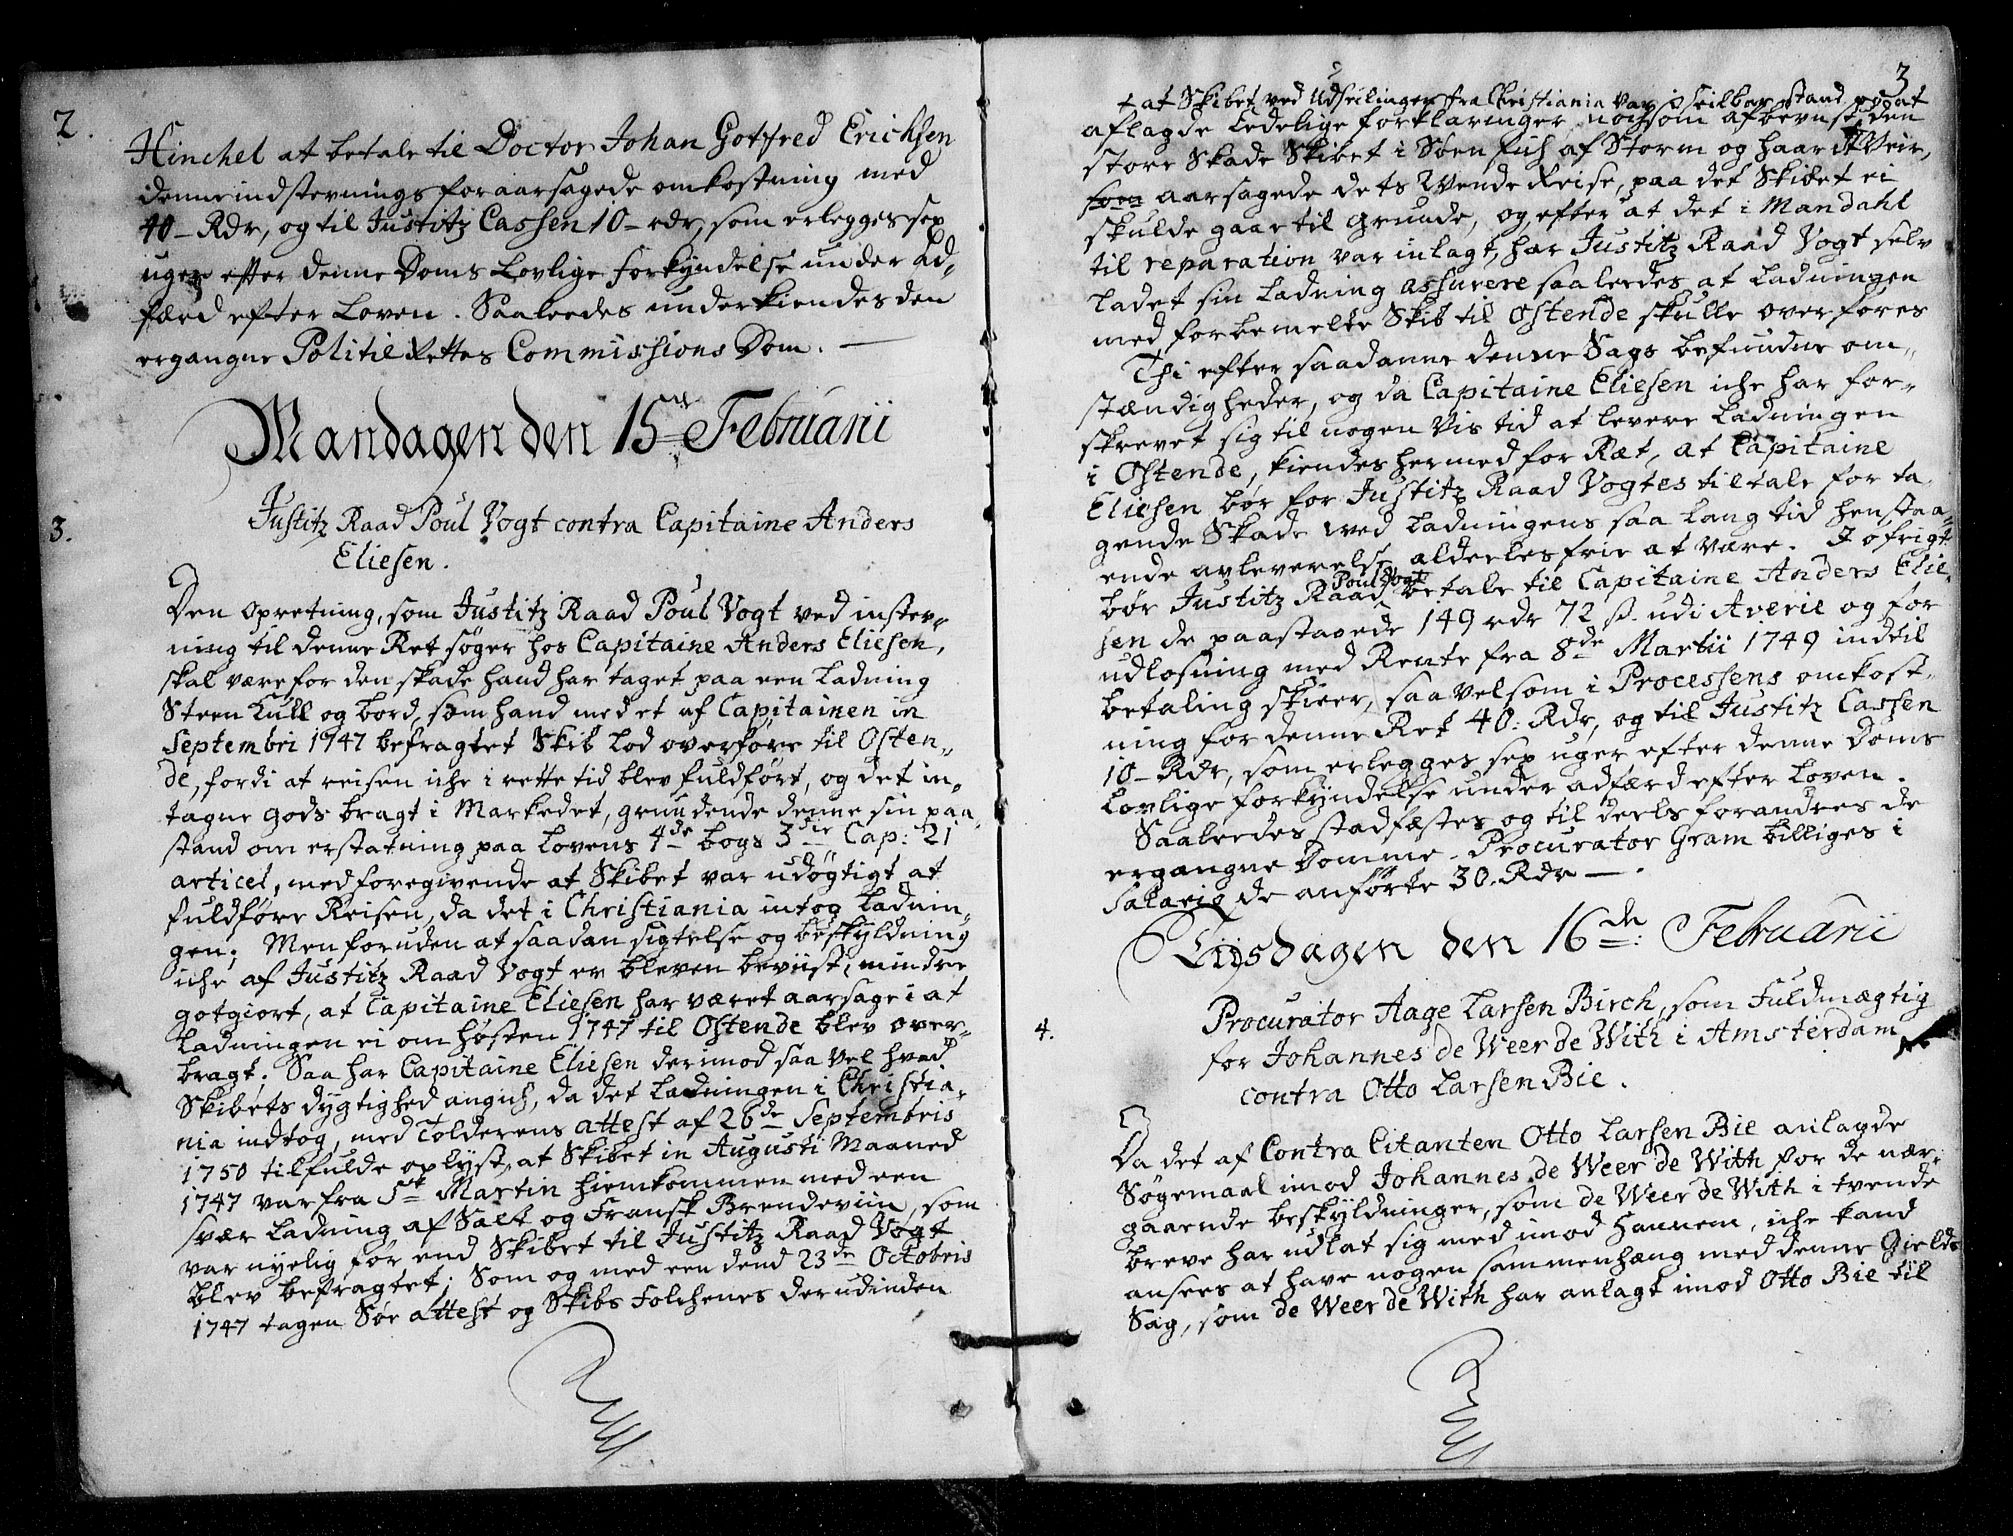 2.
Hinchel at betale til Doctor Johan Gotfred Erichsen
denne indstevnings foraarsagede omkostning med
40 – Rdr, og til Justitz Cassen 10 – rdr, som erlegges sex
uger efter denne Doms Lovlige forkyndelse under Ad-
færd efter Loven. Saaleedes underkiendes den
ergangne Politie Rettes Commissions Dom. —
Mandagen den 15de Februarii
3.
Justitz Raad Poul Vogt contra Capitaine Anders
Eliesen.
Den Opretning, som Justitz Raad Poul Vogt ved instev-
ning til denne Ret søger hos Capitaine Anders Eliesen,
skal være for den skade hand har taget paa een Ladning
Steen Kull og bord, som hand med et af Capitainen in
Septembri 1747 befragtet Skib lod overføre til Osten-
de, fordi at reisen iche i rette tid blev fuldført, og det in-
tagne gods bragt i Markedet, grundende denne sin paa-
stand om erstatning paa Lovens 4de bogs 3die Cap: 21
articel, med foregivende at Skibet var udögtigt at
fuldføre Reisen, da det i Christiania intog Ladnin-
gen; Men foruden at saadan sigtelse og beskyldning
iche af Justitz Raad Vogt er bleven beviist, mindre
gotgiort, at Capitaine Eliesen har været aarsage i at
Ladningen ei om høsten 1747 til Ostende blev over-
bragt; Saa har Capitaine Eliesen derimod saa vel hvad
Skibets dygtighed angich, da det Ladningen i Christia-
nia indtog, med Tolderens attest af 26de Septembris
1750 tilfulde oplyst, at Skibet in Augusti Maaned
1747 var fra St Martin hiemkommen med een
svær Ladning af Salt og Fransk Brendeviin, som
var nyelig for end Skibet til Justitz Raad Vogt
blev befragtet; Som og med een dend 23de Octobris
1747 tagen Søe attest og Skibs Folchenes derudinden
3
+ at Skibet ved Udseilingen fra Christiania var i seilbar stand, og at
aflagde Eedelige forklaringer nochsom afbeviise, den
store Skade Skibet i Søen fich af Storm og haardt Veir,
aarsagede dets Vende Reise, paa det Skibet ei
skulde gaae til grunde, og efter at det i Mandahl
til reparation var inlagt, har Justitz Raad Vogt selv
ladet sin Ladning assurere saaleedes at Ladningen
med forbemelte Skib til Ostende skulle overføres
Thi efter saadanne denne Sags befundne om-
stændigheder, og da Capitaine Eliesen iche har for-
skrevet sig til nogen Vis tid at levere Ladningen
i Ostende, kiendes hermed for Ræt, at Capitaine
Eliesen bør for Justitz Raad Vogtes tiltale for ta-
gende Skade ved Ladningens saa lang tid henstaa-
ende avleverelse alderlesfrie at være. I øfrigt
bør Justitz Raad Poul Vogt betale til Capitaine Anders Elie-
sen de paastaaede 149 rdr 72 s. udi Averie og for
udlosning med Rente fra 8de Martii 1749 indtil
betaling skieer, saavelsom i Processens omkost-
ning for denne Ret 40: Rdr, og til Justitz Cassen
10 – Rdr, som erlegges sex uger efter denne Doms
Lovlige forkyndelse under adfærd efter Loven.
Saaleedes stadfæstes og til deels forandres de
ergangne Domme. Procurator Gram billiges i
Salario de anførte 30. Rdr — .
Tiisdagen den 16de: Februarii
4.
Procurator Aage Larsen Birch, som Fuldmægtig
for Johannes de Weer de With i Amsterdam
contra Otto Larsen Bie.
Da det af Contra Citanten Otto Larsen Bie anlagde
Søgemaal imod Johannes de Weer de With for de nær-
gaaende beskyldninger, som de Weer de With i tvende
breve har udlat sig med imod hannem, iche kand
ansees at have nogen sammenhæng med denne Gields
Sag, som de Weer de With har anlagt imod Otto Bie til